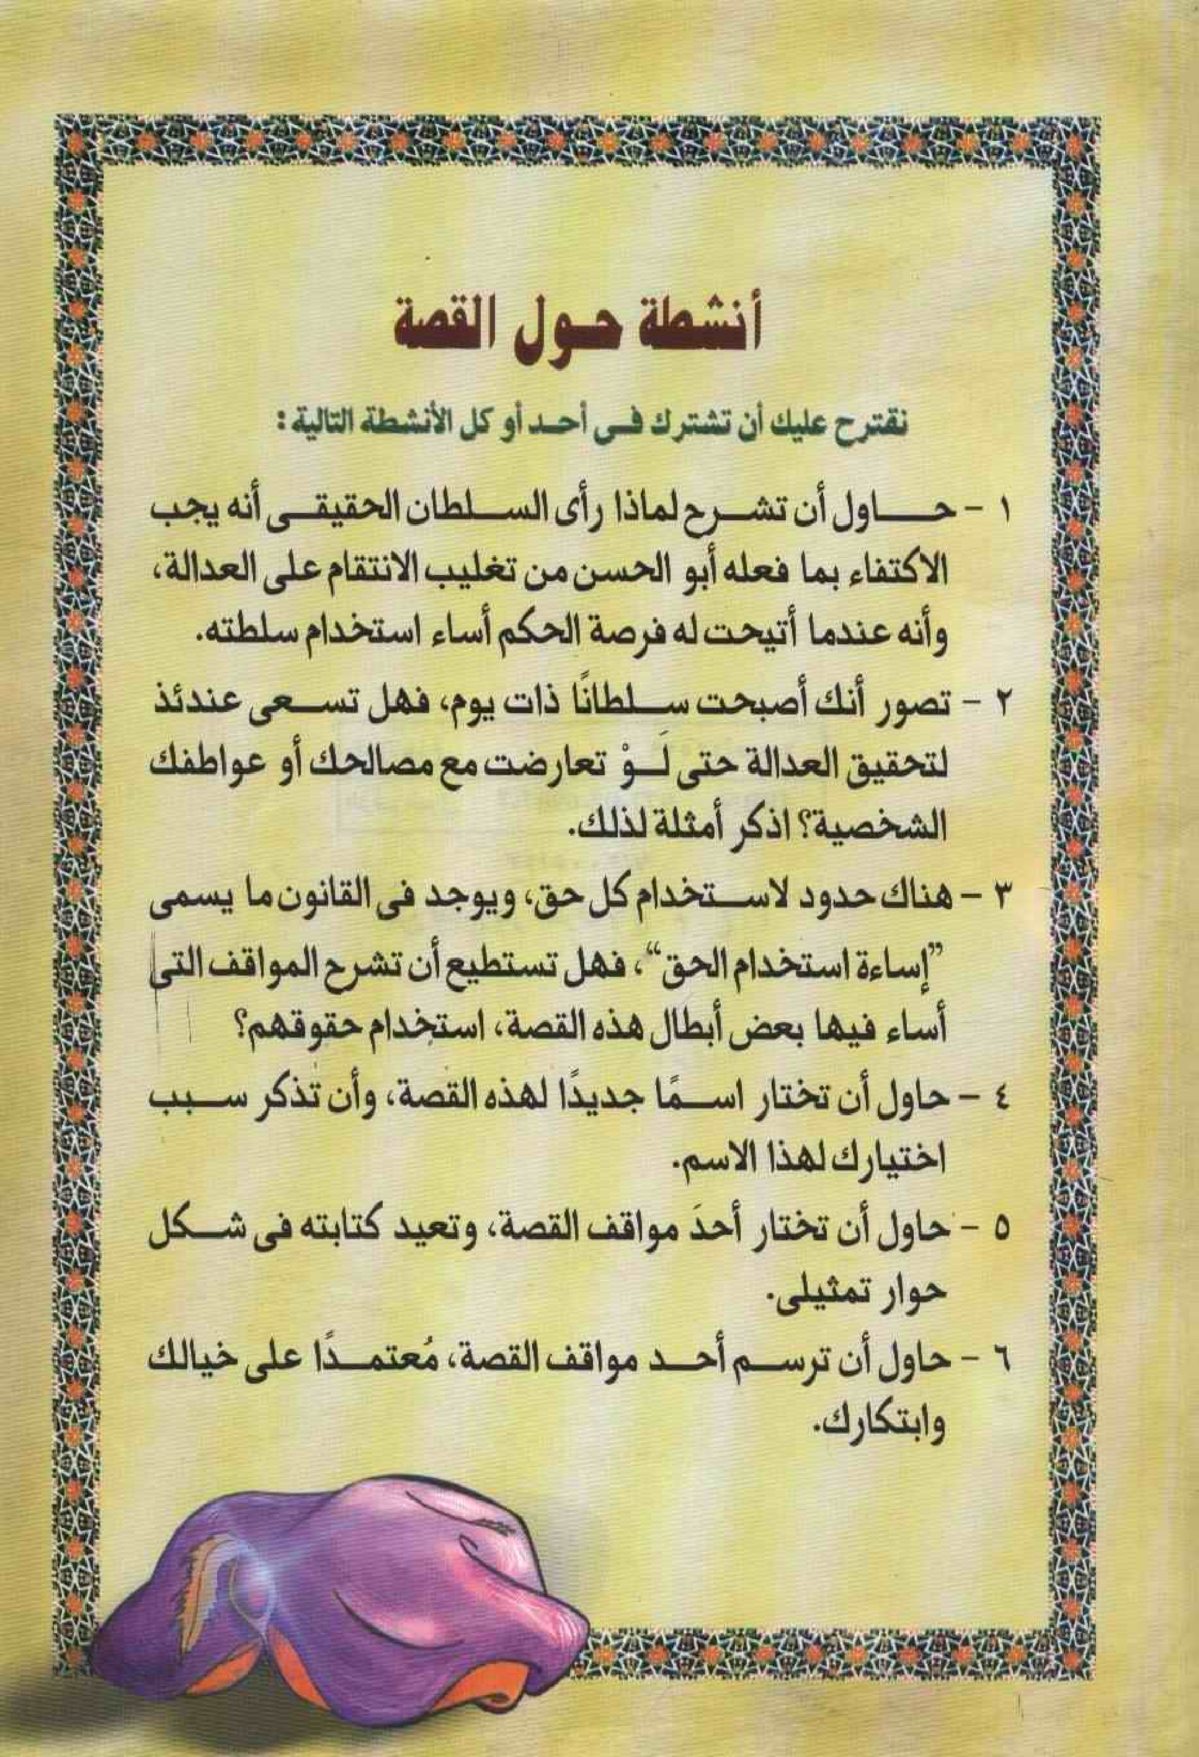 أنشطة حول القصة
نقترح عليك أن تشترك فى أحد أو كل الأنشطة التالية :
١ - حاول أن تشرح لماذا رأى السلطان الحقيقى أنه يجب
الاكتفاء بما فعله أبو الحسن من تغليب الانتقام على العدالة،
وأنه عندما أتيحت له فرصة الحكم أساء استخدام سلطته.
٢ - تصور أنك أصبحت سلطانًا ذات يوم، فهل تسعى عندئذ
لتحقيق العدالة حتى لَوْ تعارضت مع مصالحك أو عواطفك
الشخصية؟ اذكر أمثلة لذلك.
٣ - هناك حدود لاستخدام كل حق، ويوجد فى القانون ما يسمى
”إساءة استخدام الحق“، فهل تستطيع أن تشرح المواقف التى
أساء فيها بعض أبطال هذه القصة، استخدام حقوقهم؟
٤ - حاول أن تختار اسمًا جديدًا لهذه القصة، وأن تذكر سبب
اختيارك لهذا الاسم.
٥ - حاول أن تختار أحدَ مواقف القصة، وتعيد كتابته فى شكل
حوار تمثيلى.
٦ - حاول أن ترسم أحد مواقف القصة، مُعتمدًا على خيالك
وابتكارك.